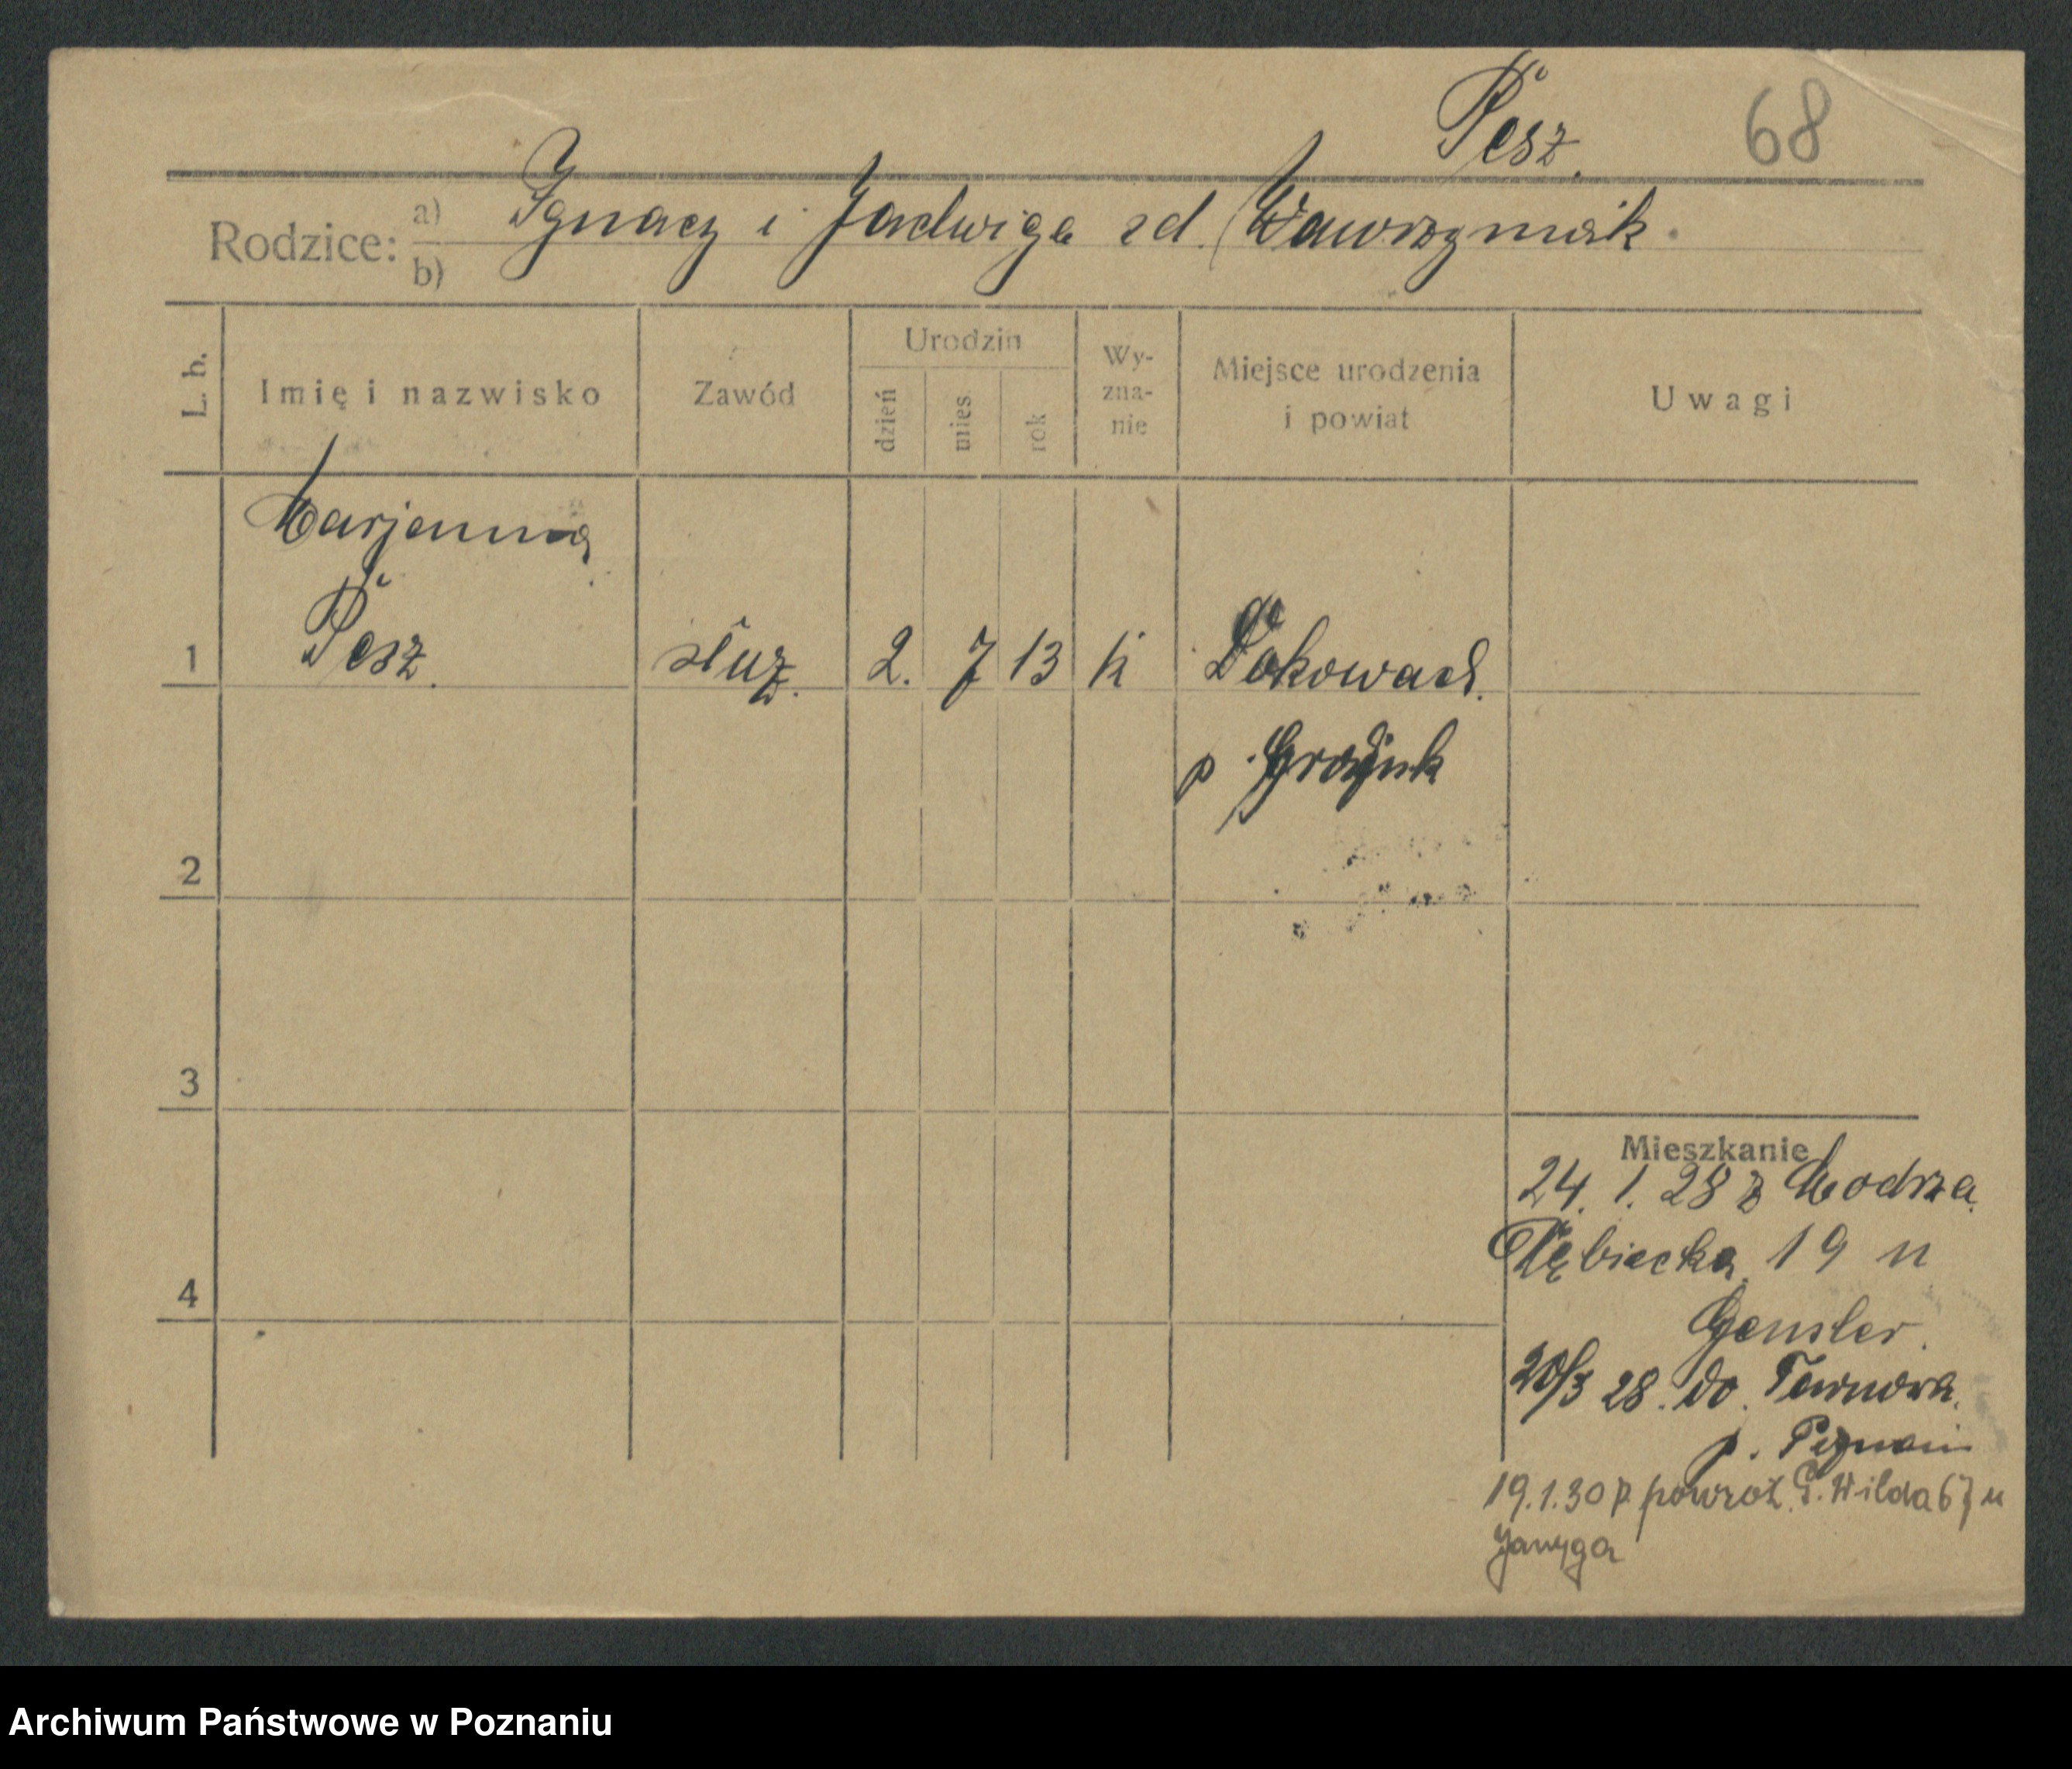 Pesz.
68
Rodzice: a) b) Ignacy i Jadwiga zd. Wawrzyniak.
L. b.
Imię i nazwisko
Zawód
Urodzin
dzień
mies.
rok
Wy-
zna-
nie
Miejsce urodzenia
i powiat
Uwagi
Marjanna
1 Pesz. służ. 2. 7 13 k
p.
2
3
Mieszkanie
24. 1. 28 z Modrza
19 u
4
Gensler.
28. do Tarnowa.
p. Poznań
19.1.30 z powrot. G. Wilda 67 u
Archiwum Państwowe w Poznaniu